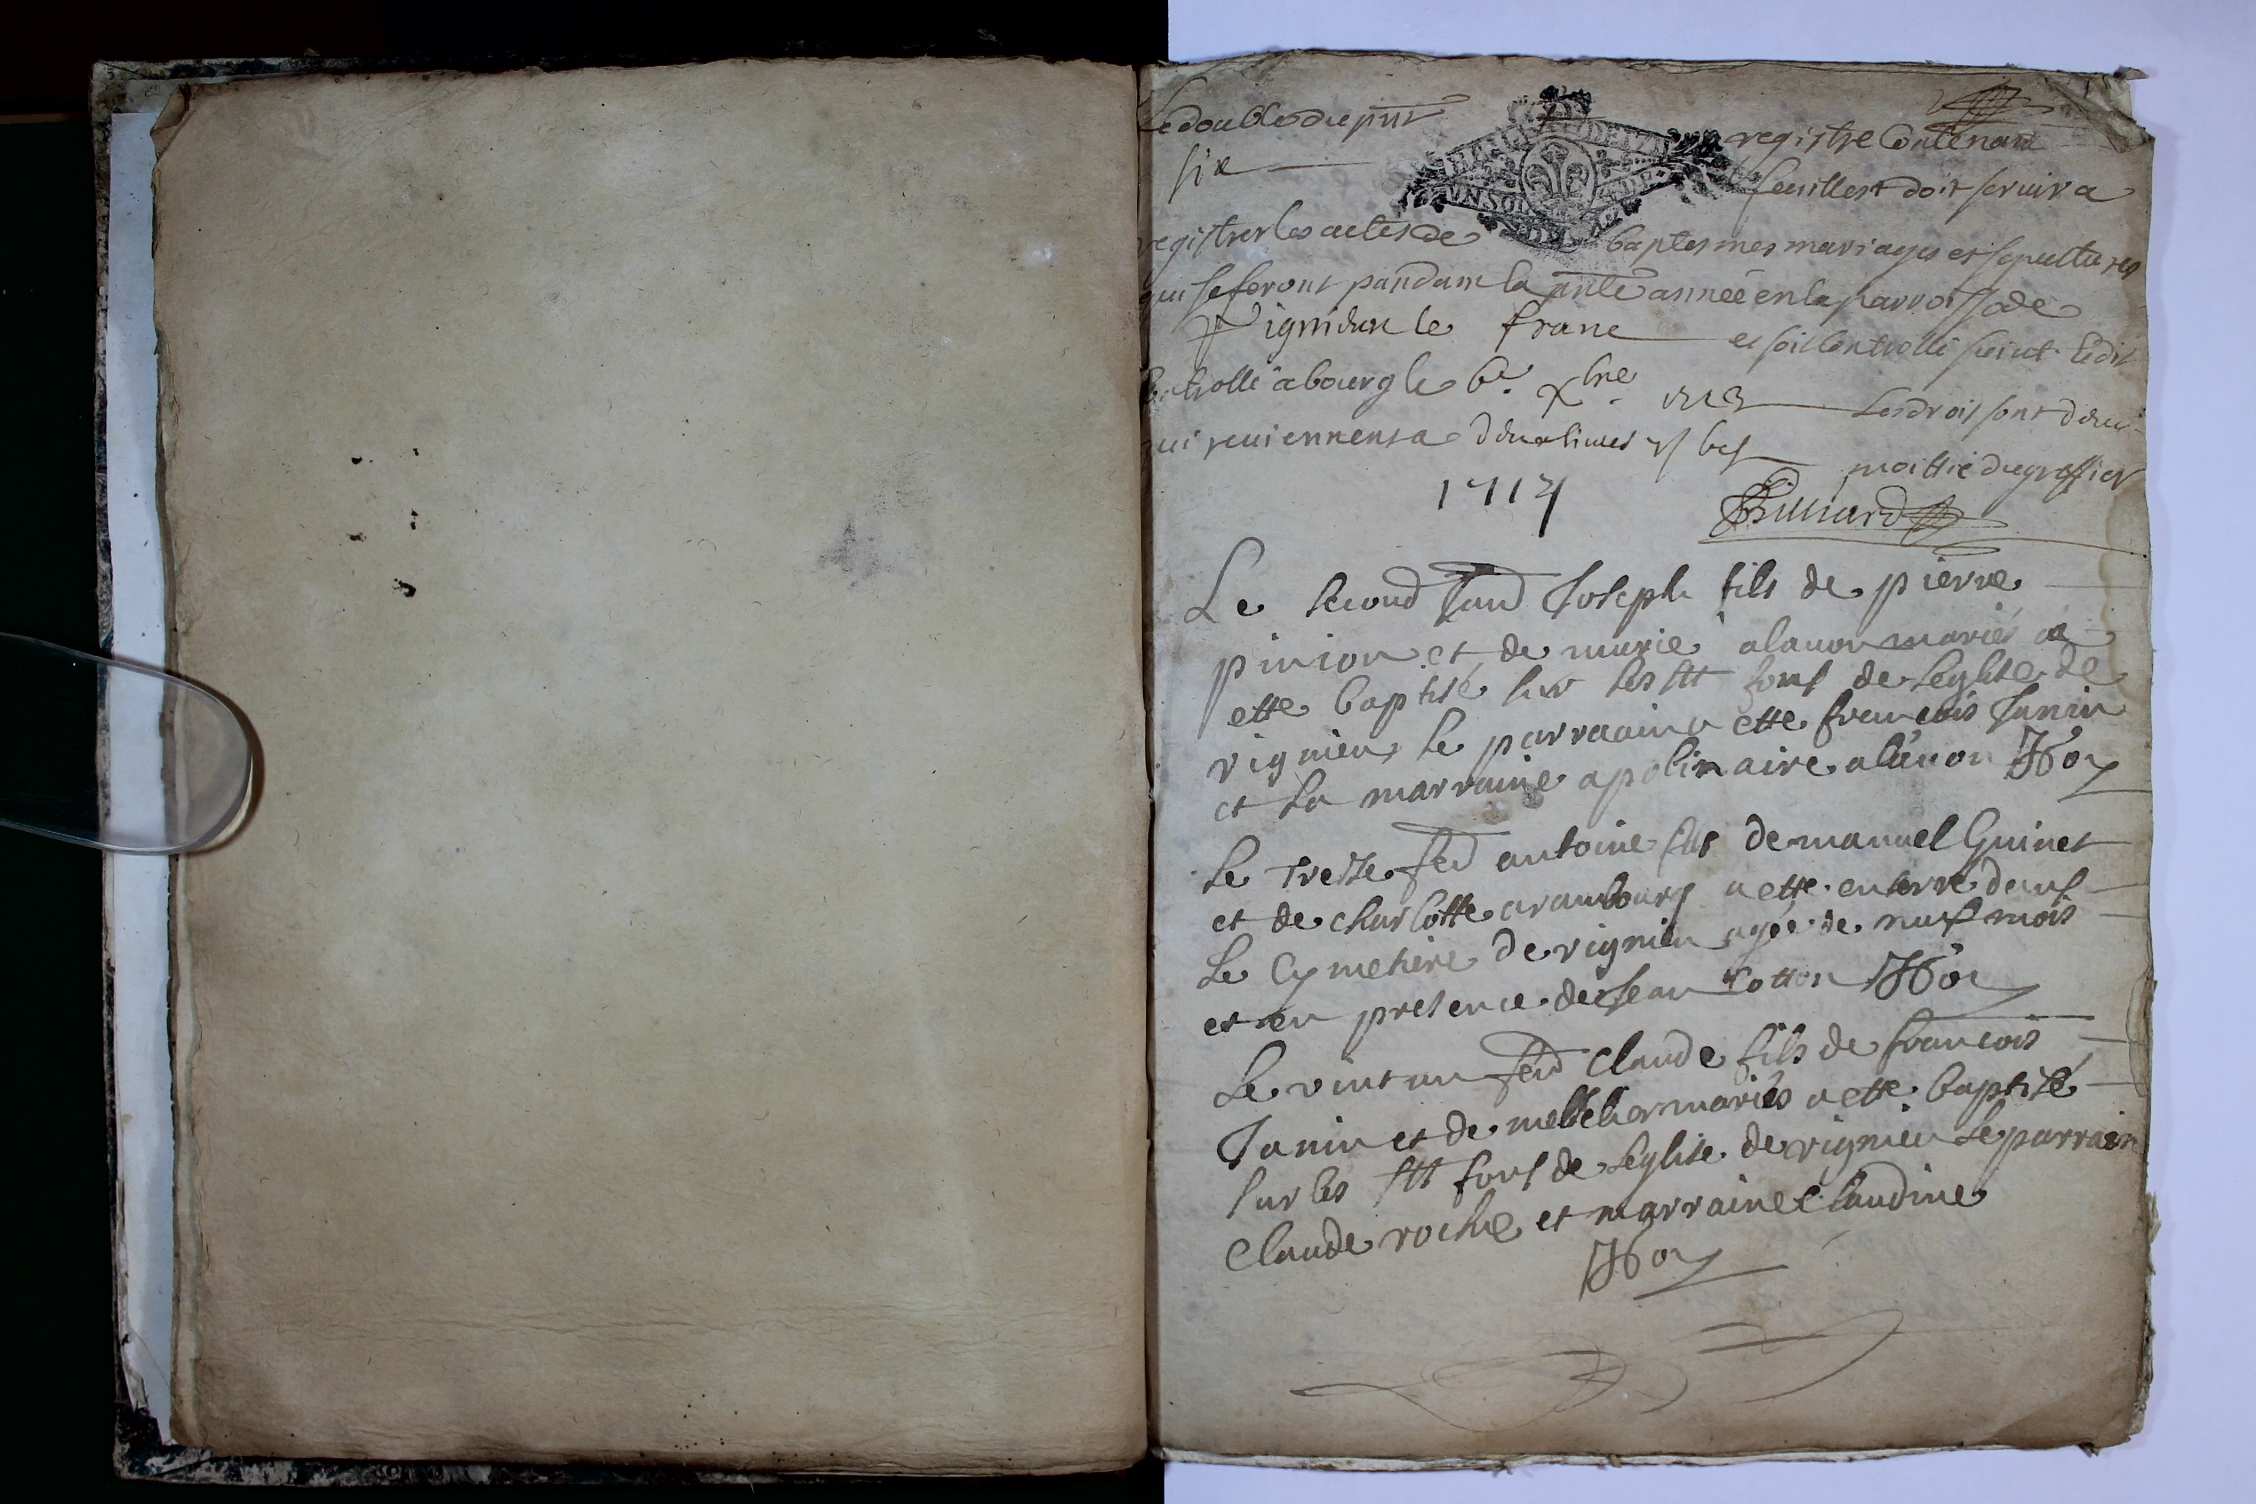 Le double du pnt registre Contenant
six feuillest doit servir a
registrer les actes de baptesmes mariages et sepultures
qui se feront pandant la pnte année en la parroisse de
Vignieu le franc et soit Controllé suivt Ledit
Controllé a bourg le 6e. xbre. 1713 Les drois sont
qui reviennent a moittié du greffier
1714
Le second Janv Joseph fils de pierre
pinion et de marie alavon mariés a
ette baptisé sur les stt fons de leglise de
vignieu le parraain a ette francois Janin
et la marraine apolinaire alavon
Le treise fev antoine fils de manuel Guinet
et de charlotte arambourg a ette enterre dans
Le Cymetiere de vignieu agée de neuf mois
et en presence de Jean Cotton
Le vint un fev Claude fils de francois
Janin et de mariés a ette baptisé
sur les stt fons de leglise de vignieu Le parrain
Claude roche et marraine Claudine